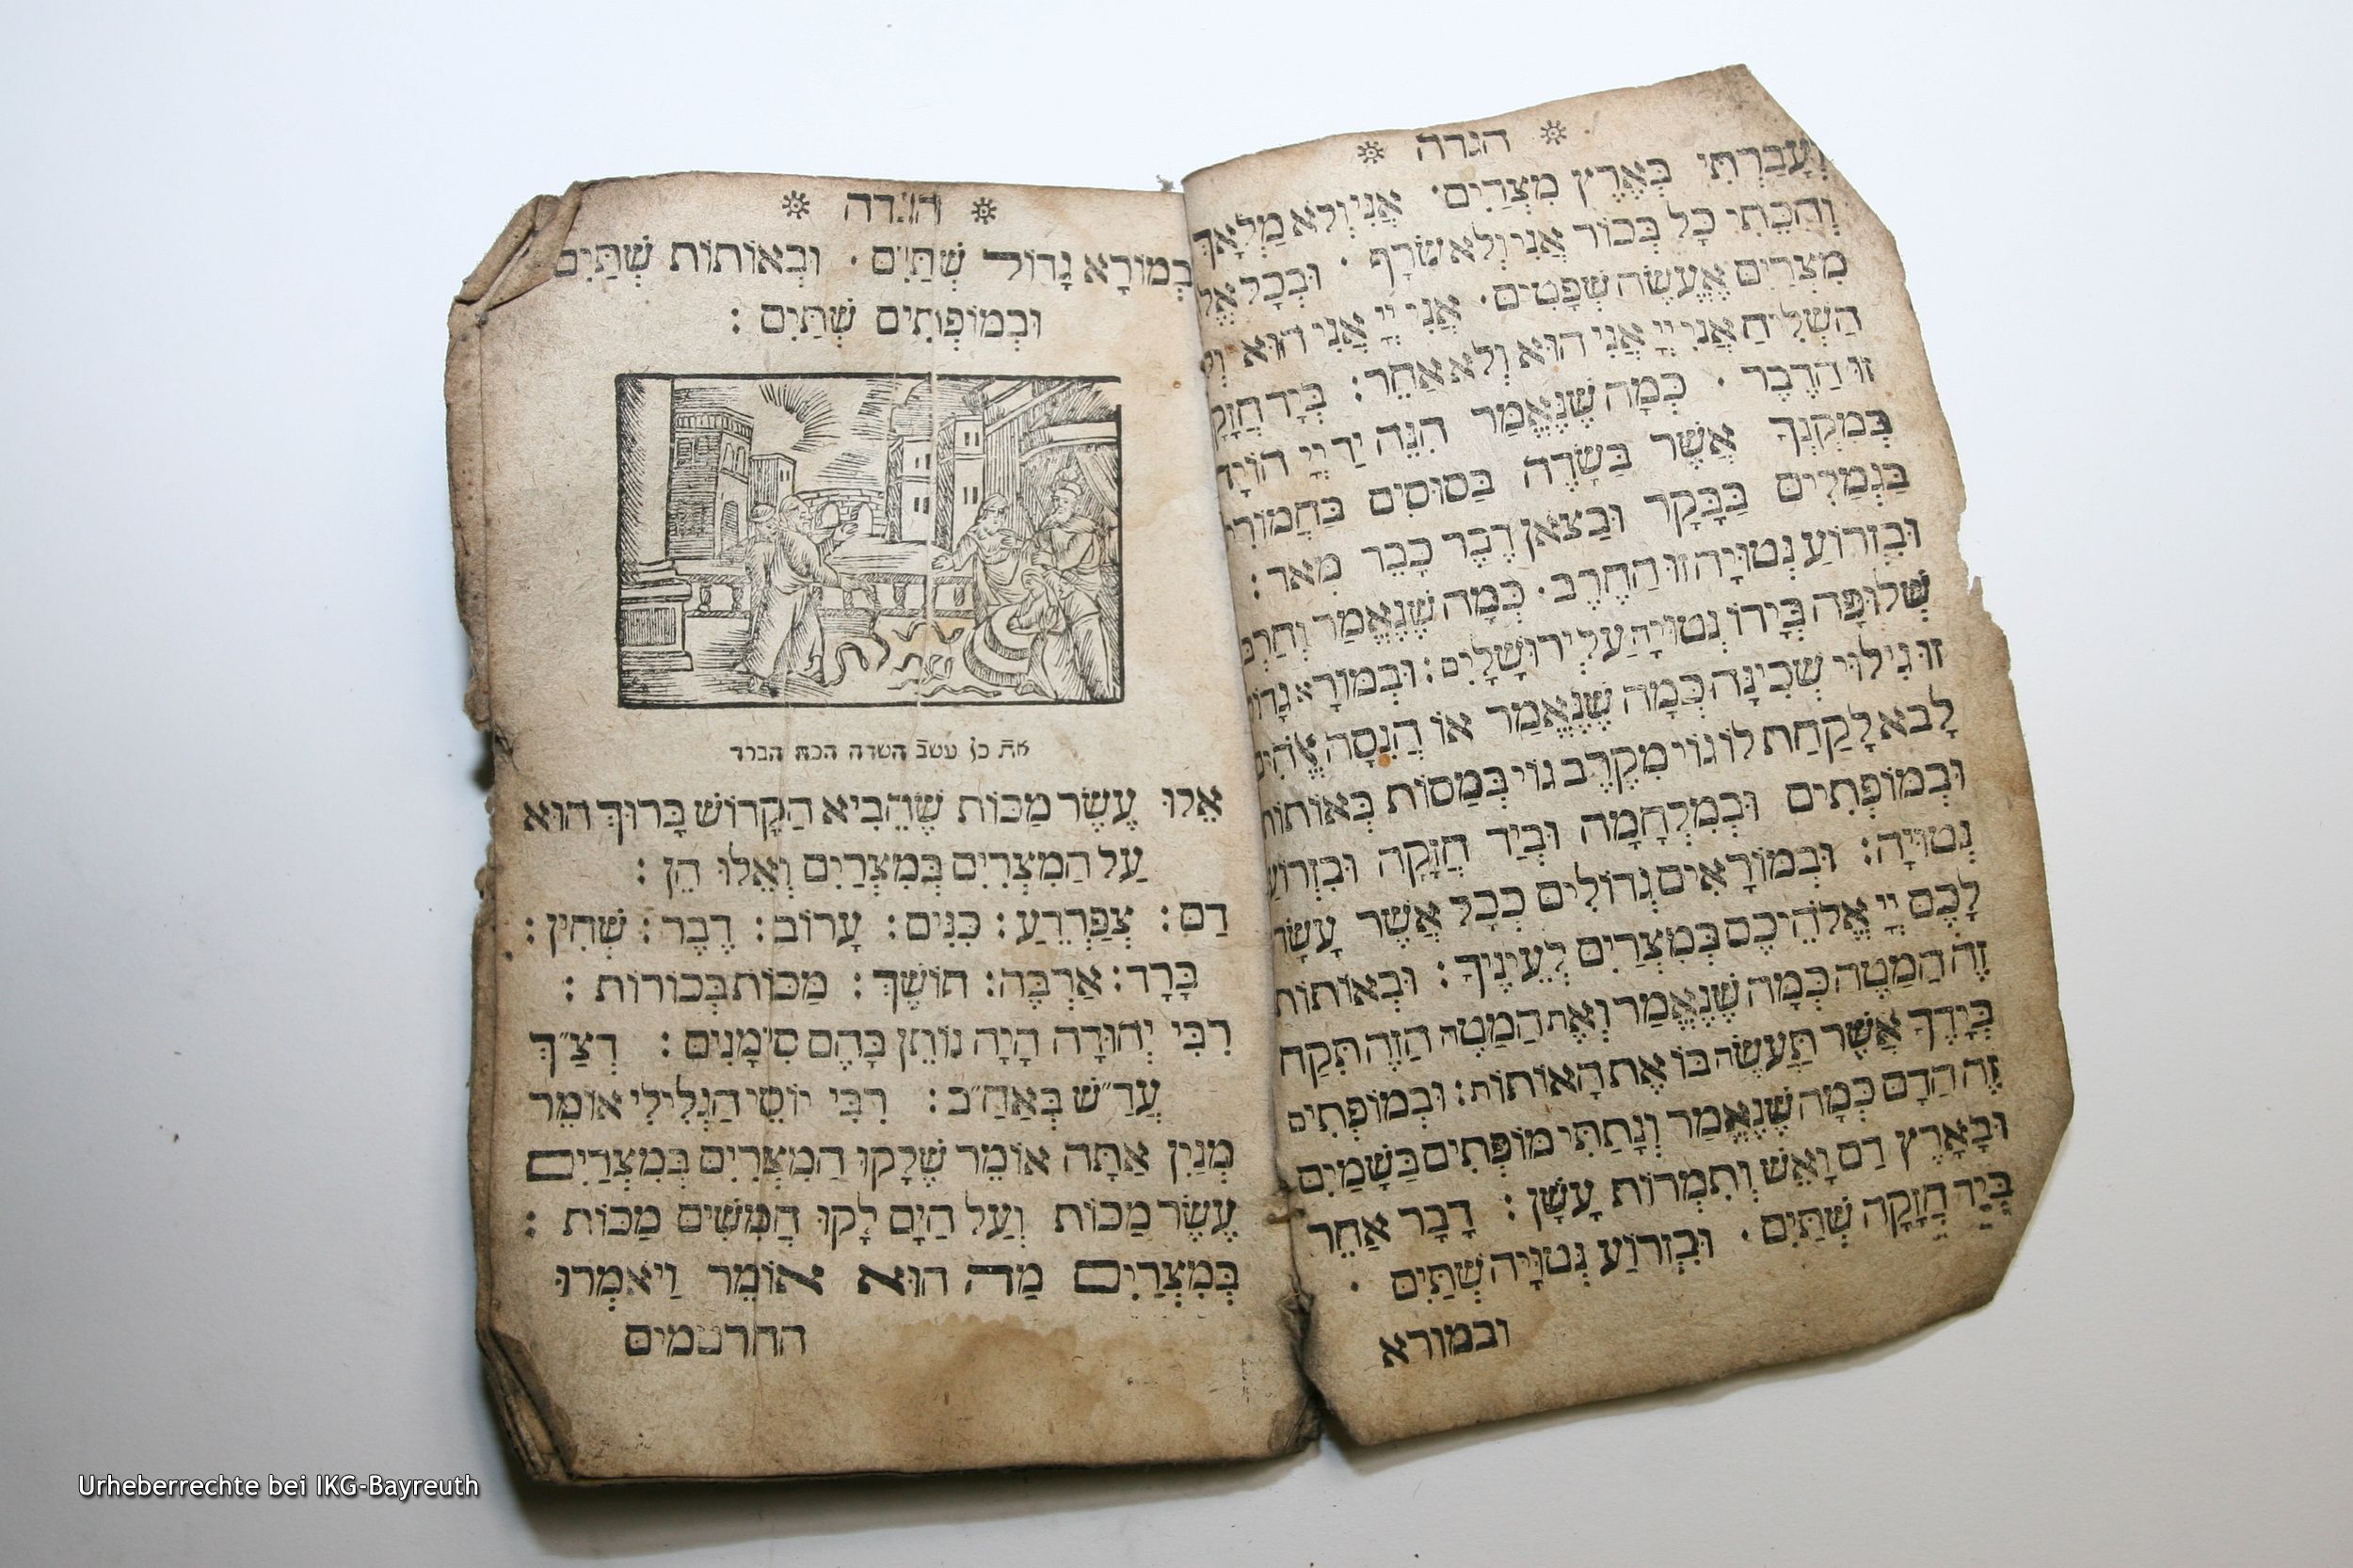 הגדה
וְעָבַרְתִּי בְּאֶרֶץ מִצְרַיִם· אֲנִי וְלֹא מַלְאָךְ
וְהִכֵּתִי כָּל בְּכוֹר אֲנִי וְלֹא שָׂרָף · וּבְכָל אֱלֹ
מִצְרַיִם אֶעֱשֶׂה שְׁפָטִים· אֲנִי יְיָ אֲנִי הוּא וְלֹ
הַשְּׁלִיחַ אֲנִי יְיָ אֲנִי הוּא וְלֹא אַחֵר: בְּיָד חֲזָקָ
זוּ הַדֶּבֶר · כְּמָה שֶׁנֶּאֱמַר הִנֵּה יַד יְיָ הוֹיָה
בְּמִקְנְךָ אֲשֶׁר בַּשָּׂדֶה בַּסּוּסִים בַּחֲמוֹרִי
בַּגְּמַלִּים בַּבָּקָר וּבַצֹּאן דֶּבֶר כָּבֵד מְאֹד:
וּבִזְרוֹעַ נְטוּיָה זוּ הַחֶרֶב· כְּמָה שֶׁנֶּאֱמַר וְחַרְבּ
שְׁלוּפָה בְּיָדוֹ נְטוּיָה עַל יְרוּשָׁלָיִם: וּבְמוֹרָא גָּדוֹ
זוּ גִילּוּי שְׁכִינָה כְּמָה שֶׁנֶּאֱמַר אוֹ הֲנִסָּה אֱלֹהִים
לָבֹא לָקַחַת לוֹ גוֹי מִקֶּרֶב גּוֹי בְּמַסּוֹת בְּאוֹתוֹת
וּבְמוֹפְתִים וּבְמִלְחָמָה וּבְיַד חֲזָקָה וּבִזְרוֹעַ
נְטוּיָה: וּבְמוֹרָאִים גְּדוֹלִים כְּכָל אֲשֶׁר עָשָׂה
לָכֶם יְיָ אֱלֹהֵיכֶם בְּמִצְרַיִם לְעֵינֶיךָ: וּבְאוֹתוֹת
זֶה הַמַּטֶּה כְּמָה שֶׁנֶּאֱמַר וְאֶת הַמַּטֶּה הַזֶּה תִּקַּח
בְּיָדֶךָ אֲשֶׁר תַּעֲשֶׂה בּוֹ אֶת הָאוֹתוֹת: וּבְמוֹפְתִים
זֶה הַדָּם כְּמָה שֶׁנֶּאֱמַר וְנָתַתִּי מוֹפְתִים בַּשָּׁמַיִם
וּבָאָרֶץ דַּם וָאֵשׁ וְתִמְרוֹת עָשָׁן: דָּבָר אַחֵר
בְּיָד חֲזָקָה שְׁתַּיִם· וּבִזְרוֹעַ נְטוּיָה שְׁתַּיִם ·
ובמורא
הגדה
בְּמוֹרָא גָּדוֹל שְׁתַּיִם · וּבְאוֹתוֹת שְׁתַּיִם
וּבְמוֹפְתִים שְׁתַּיִם :
את כל עשב השדה הכה הברד
אֵלוּ עֶשֶׂר מַכּוֹת שֶׁהֵבִיא הַקָּדוֹשׁ בָּרוּךְ הוּא
עַל הַמִּצְרִיִם בְּמִצְרַיִם וְאֵלוּ הֵן :
דַּם: צְפַרְדֵּעַ: כִּנִּים: עָרוֹב: דֶּבֶר: שְׁחִין:
בָּרָד: אַרְבֶּה: חוֹשֶׁךְ: מַכּוֹת בְּכוֹרוֹת :
רִבִּי יְהוּדָה הָיָה נוֹתֵן בָּהֶם סִימָנִים: דְּצַ״ךְ
עֲדַ״שׁ בְּאַחַ״ב: רִבִּי יוֹסֵי הַגְּלִילִי אוֹמֵר
מְנַיִן אַתָּה אוֹמֵר שֶׁלָּקוּ הַמִּצְרִיִם בְּמִצְרַיִם
עֶשֶׂר מַכּוֹת וְעַל הַיָּם לָקוּ חֲמִשִּׁים מַכּוֹת :
בְּמִצְרַיִם מַה הוּא אוֹמֵר וַיֹּאמְרוּ
החרטמים
Urheberrechte bei IKG-Bayreuth